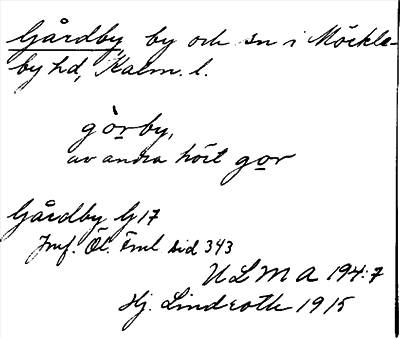 Gårdby, by och sn i Möckle-
by hd, Kalm. l.
gòrby,
av andra hört gor
Gårdby G17
Jmf. Öl. Fml. sid 343
ULMA 194:7
Hj. Lindroth 1915